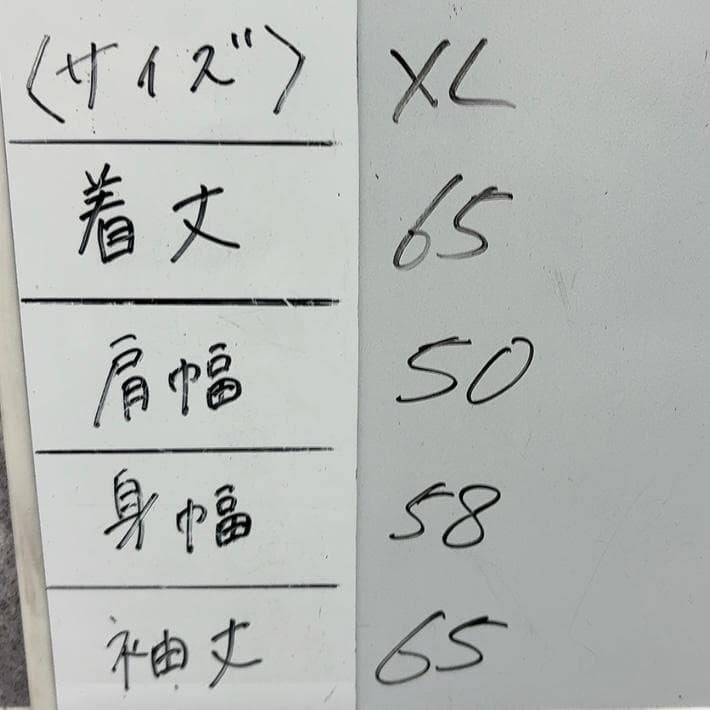 〈サイズ〉 XL
着丈 65
肩幅 50
身幅 58
袖丈 65